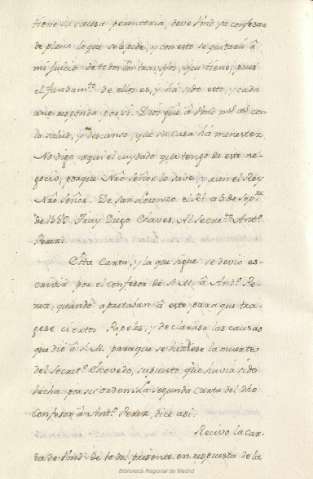 tiene la causa perentoria, deve Vmd. ya confesar
de plano lo que se le pide, y con esto se quitará â
mi juicio de todos los tra, que tiene, pues
el fundam.to de ellos es, y há sido esto, y cada
uno responda por sí. Dios guê. â Vmd m.s a.s con
la salud, y descanso, que su casa há menester
No digo aquí el cuydado que tengo de este ne-
gocio, porque Nro Señor lo save, y aun el Rey
Nro Señor. De San Lorenzo el Rl. a 5 de Sep.re
de Fray Diego Chaves. Al Secret.o Ant.o
Perez.
Esta Carta, y la que sigue se devió es-
cribir por el confesor de S. M. â Ant.o Pe-
rez, quando apretaban â este para que tra-
gese ciertos Papeles, y declarase las causas
que dió â S. M. para que se hiciese la muerte
del Secret.o Escovedo, supuesto que havía sido
hecha por su orden. La segunda Carta del dho
Confesor â Ant.o Perez, dice así.
Recivo la Car-
ta de Vmd. de del presente en respuesta de la
Biblioteca Regional de Madrid